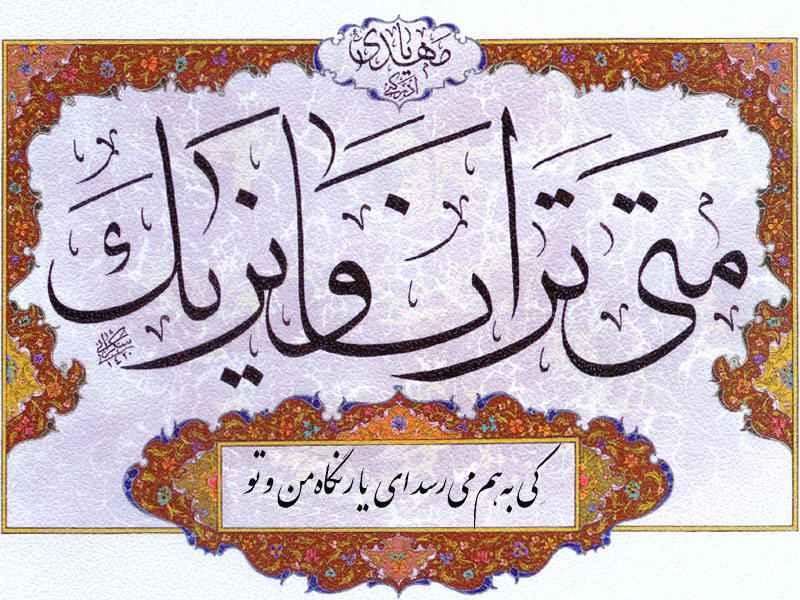 مهدیا
ادرکنی
متی ترانا و نریک
کی به هم می رسد ای یار نگاه من و تو
۱۴۲۰